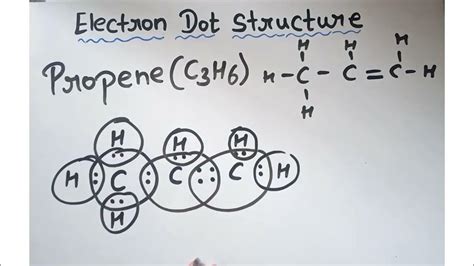 Electron Dot Structure
Propene (C3H6)
H H H
H-C-C=C-H
H
H H H
H C C C H
H